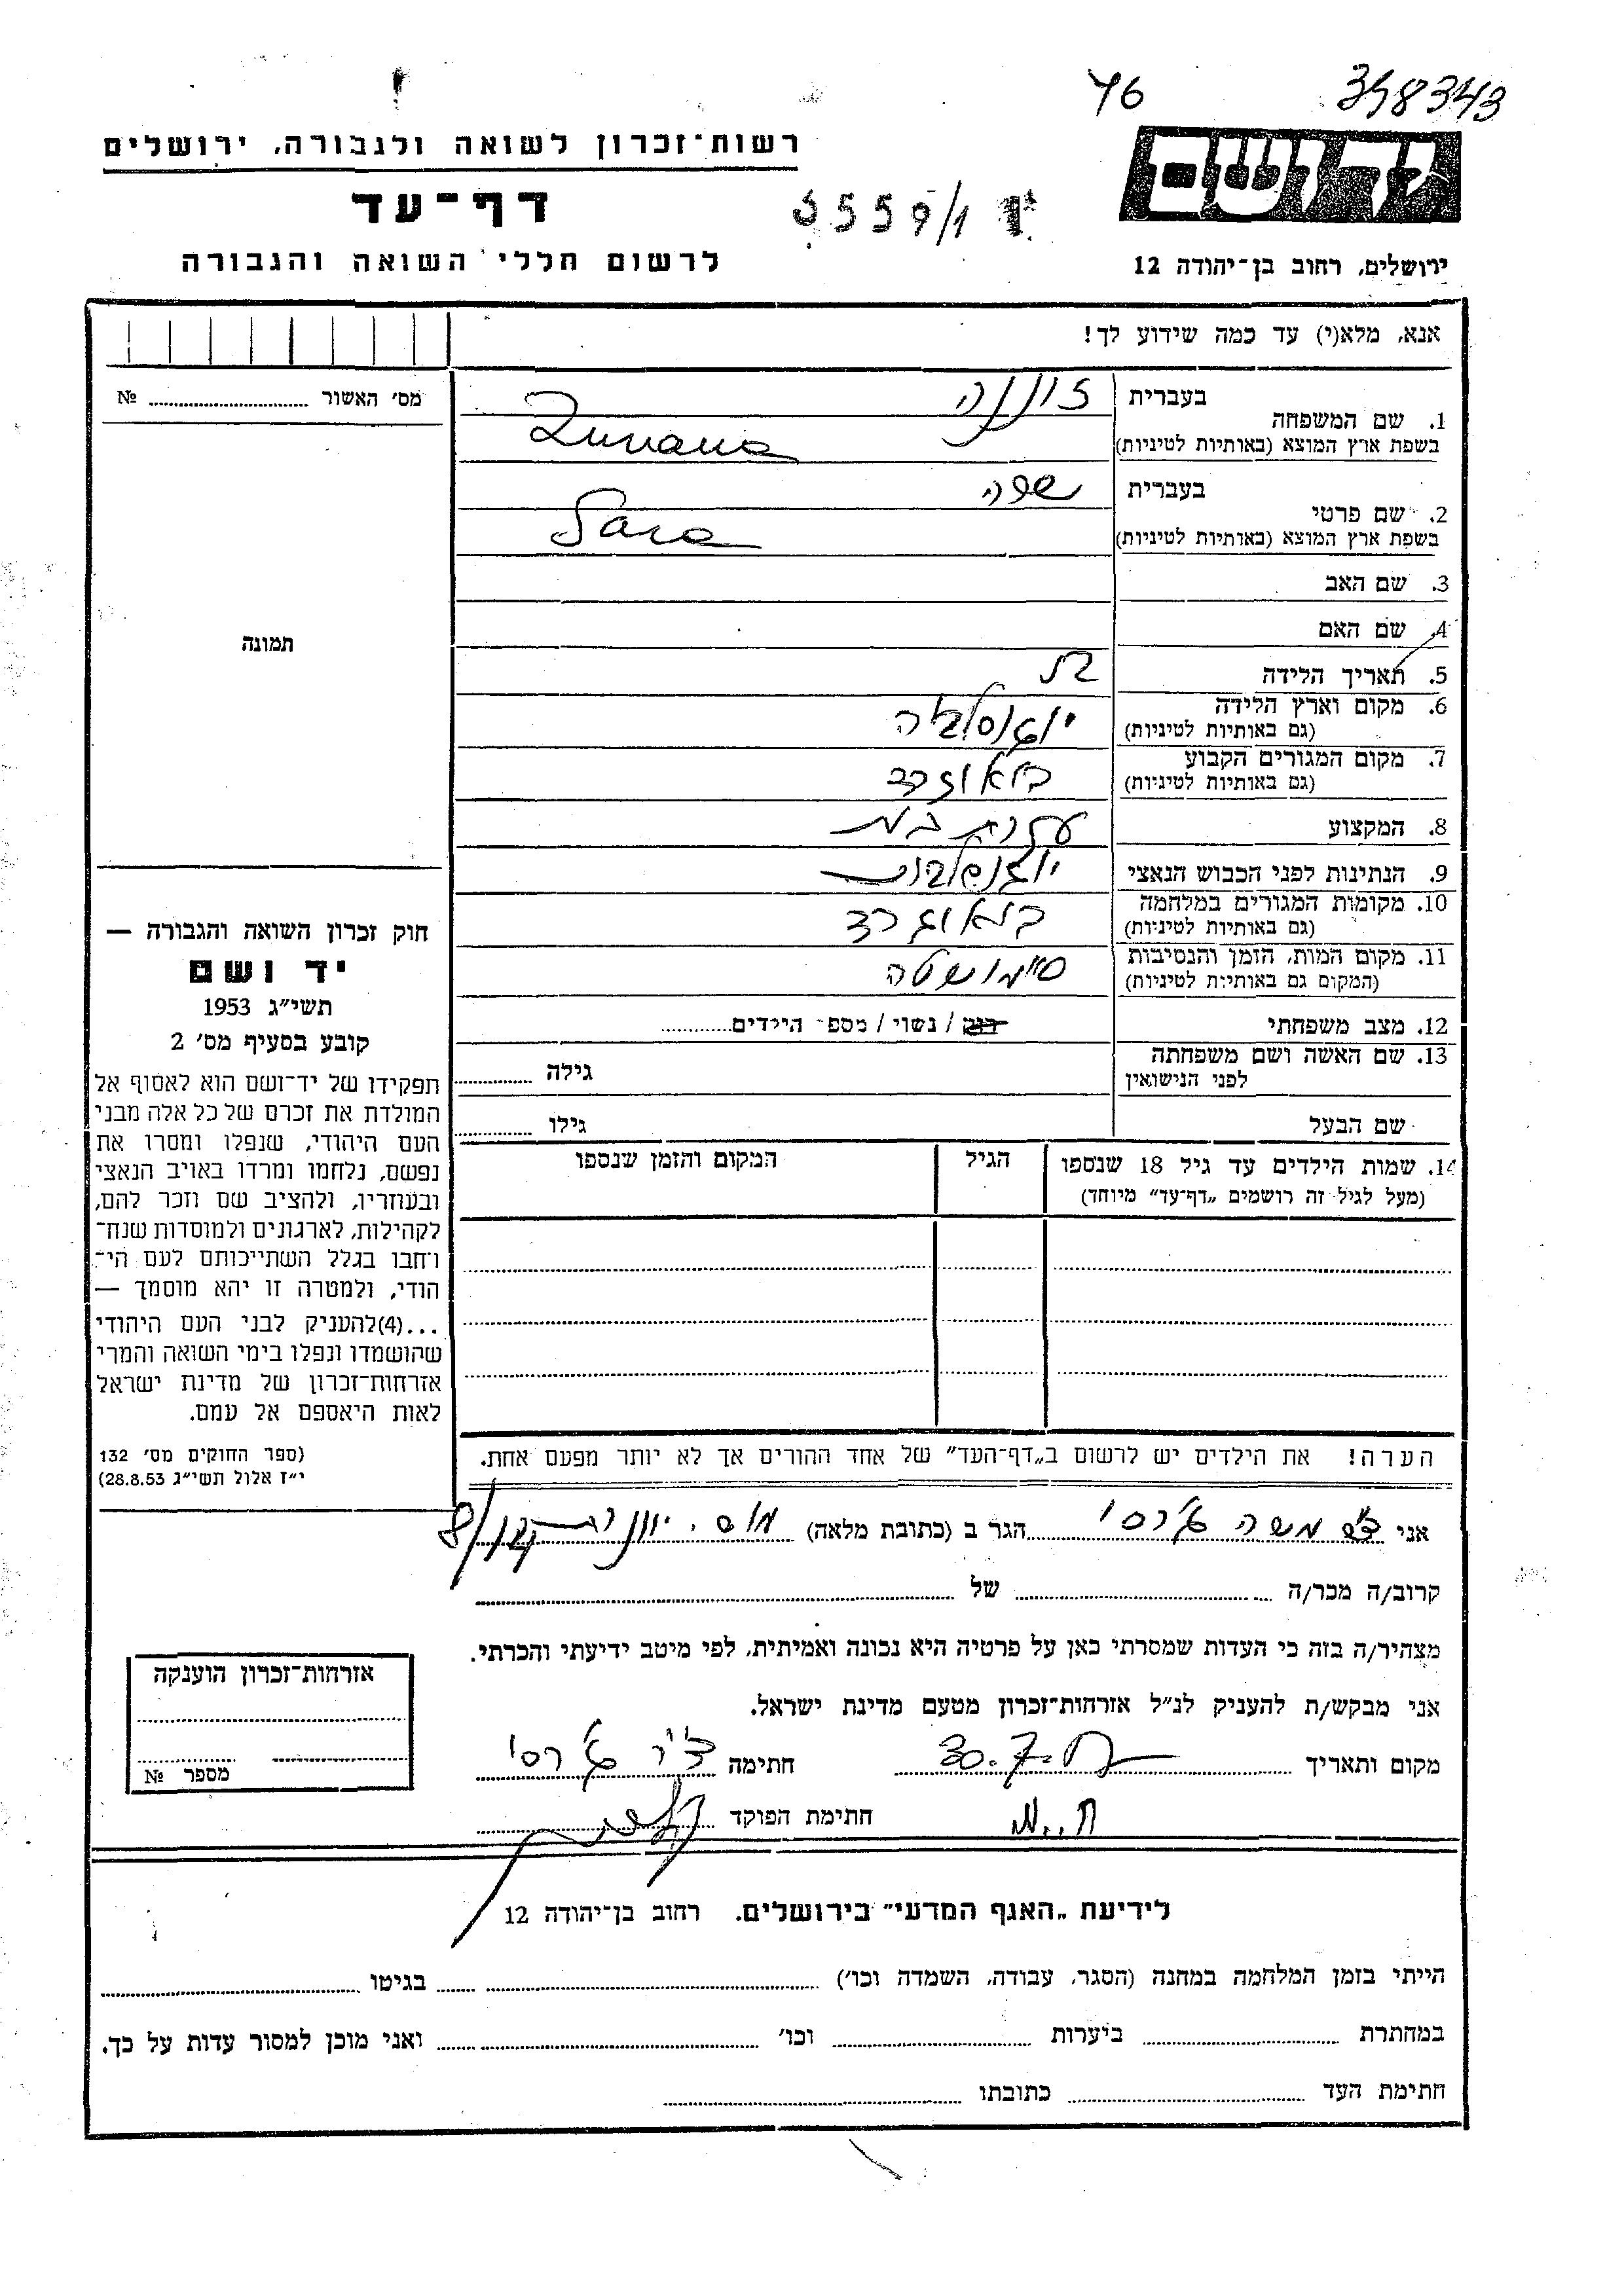 46 398343
רשות־זכרון לשואה ולגבורה, ירושלים
יד ושם
דף־עד
לרשום חללי השואה והגבורה
ירושלים, רחוב בן־יהודה 12
אנא, מלא(י) עד כמה שידוע לך!
מס׳ האשור № ....................
1. שם המשפחה בעברית זוננה
בשפת ארץ המוצא (באותיות לטיניות) Zunana
2. שם פרטי בעברית שרה
בשפת ארץ המוצא (באותיות לטיניות) Sara
3. שם האב
4. שם האם
תמונה
5. תאריך הלידה
6. מקום וארץ הלידה יוגוסלביה
(גם באותיות לטיניות)
7. מקום המגורים הקבוע בלאוגרד
(גם באותיות לטיניות)
8. המקצוע עקרת בית
9. הנתינות לפני הכבוש הנאצי יוגוסלבית
10. מקומות המגורים במלחמה בלאוגרד
(גם באותיות לטיניות)
11. מקום המות, הזמן והנסיבות סיימושטה
(המקום גם באותיות לטיניות)
12. מצב משפחתי רוק / נשוי / מספ׳ הילדים............
13. שם האשה ושם משפחתה גילה ............
לפני הנישואין
שם הבעל גילו ............
14. שמות הילדים עד גיל 18 שנספו הגיל המקום והזמן שנספו
(מעל לגיל זה רושמים „דף־עד” מיוחד)
חוק זכרון השואה והגבורה —
יד ושם
תשי״ג 1953
קובע בסעיף מס׳ 2
תפקידו של יד־ושם הוא לאסוף אל
המולדת את זכרם של כל אלה מבני
העם היהודי, שנפלו ומסרו את
נפשם, נלחמו ומרדו באויב הנאצי
ובעוזריו, ולהציב שם וזכר להם,
לקהילות, לארגונים ולמוסדות שנח־
רחבו בגלל השתייכותם לעם הי־
הודי, ולמטרה זו יהא מוסמך —
...(4)להעניק לבני העם היהודי
שהושמדו ונפלו בימי השואה והמרי
אזרחות־זכרון של מדינת ישראל
לאות היאספם אל עמם.
(ספר החוקים מס׳ 132
י״ז אלול תשי״ג 28.8.53)
הערה! את הילדים יש לרשום ב„דף־העד” של אחד ההורים אך לא יותר מפעם אחת.
אני משה הגר ב (כתובת מלאה)
קרוב/ה מכר/ה .................... של ....................
מצהיר/ה בזה כי העדות שמסרתי כאן על פרטיה היא נכונה ואמיתית, לפי מיטב ידיעתי והכרתי.
אני מבקש/ת להעניק לנ״ל אזרחות־זכרון מטעם מדינת ישראל.
מקום ותאריך 30.7. חתימה
חתימת הפוקד
אזרחות־זכרון הוענקה
מספר №
לידיעת „האגף המדעי” בירושלים. רחוב בן־יהודה 12
הייתי בזמן המלחמה במחנה (הסגר, עבודה, השמדה וכו׳) .................... בגיטו ....................
במחתרת .................... ביערות .................... וכו׳ .................... ואני מוכן למסור עדות על כך.
חתימת העד .................... כתובתו ....................